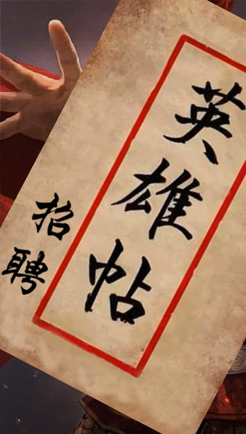 英雄帖
招聘